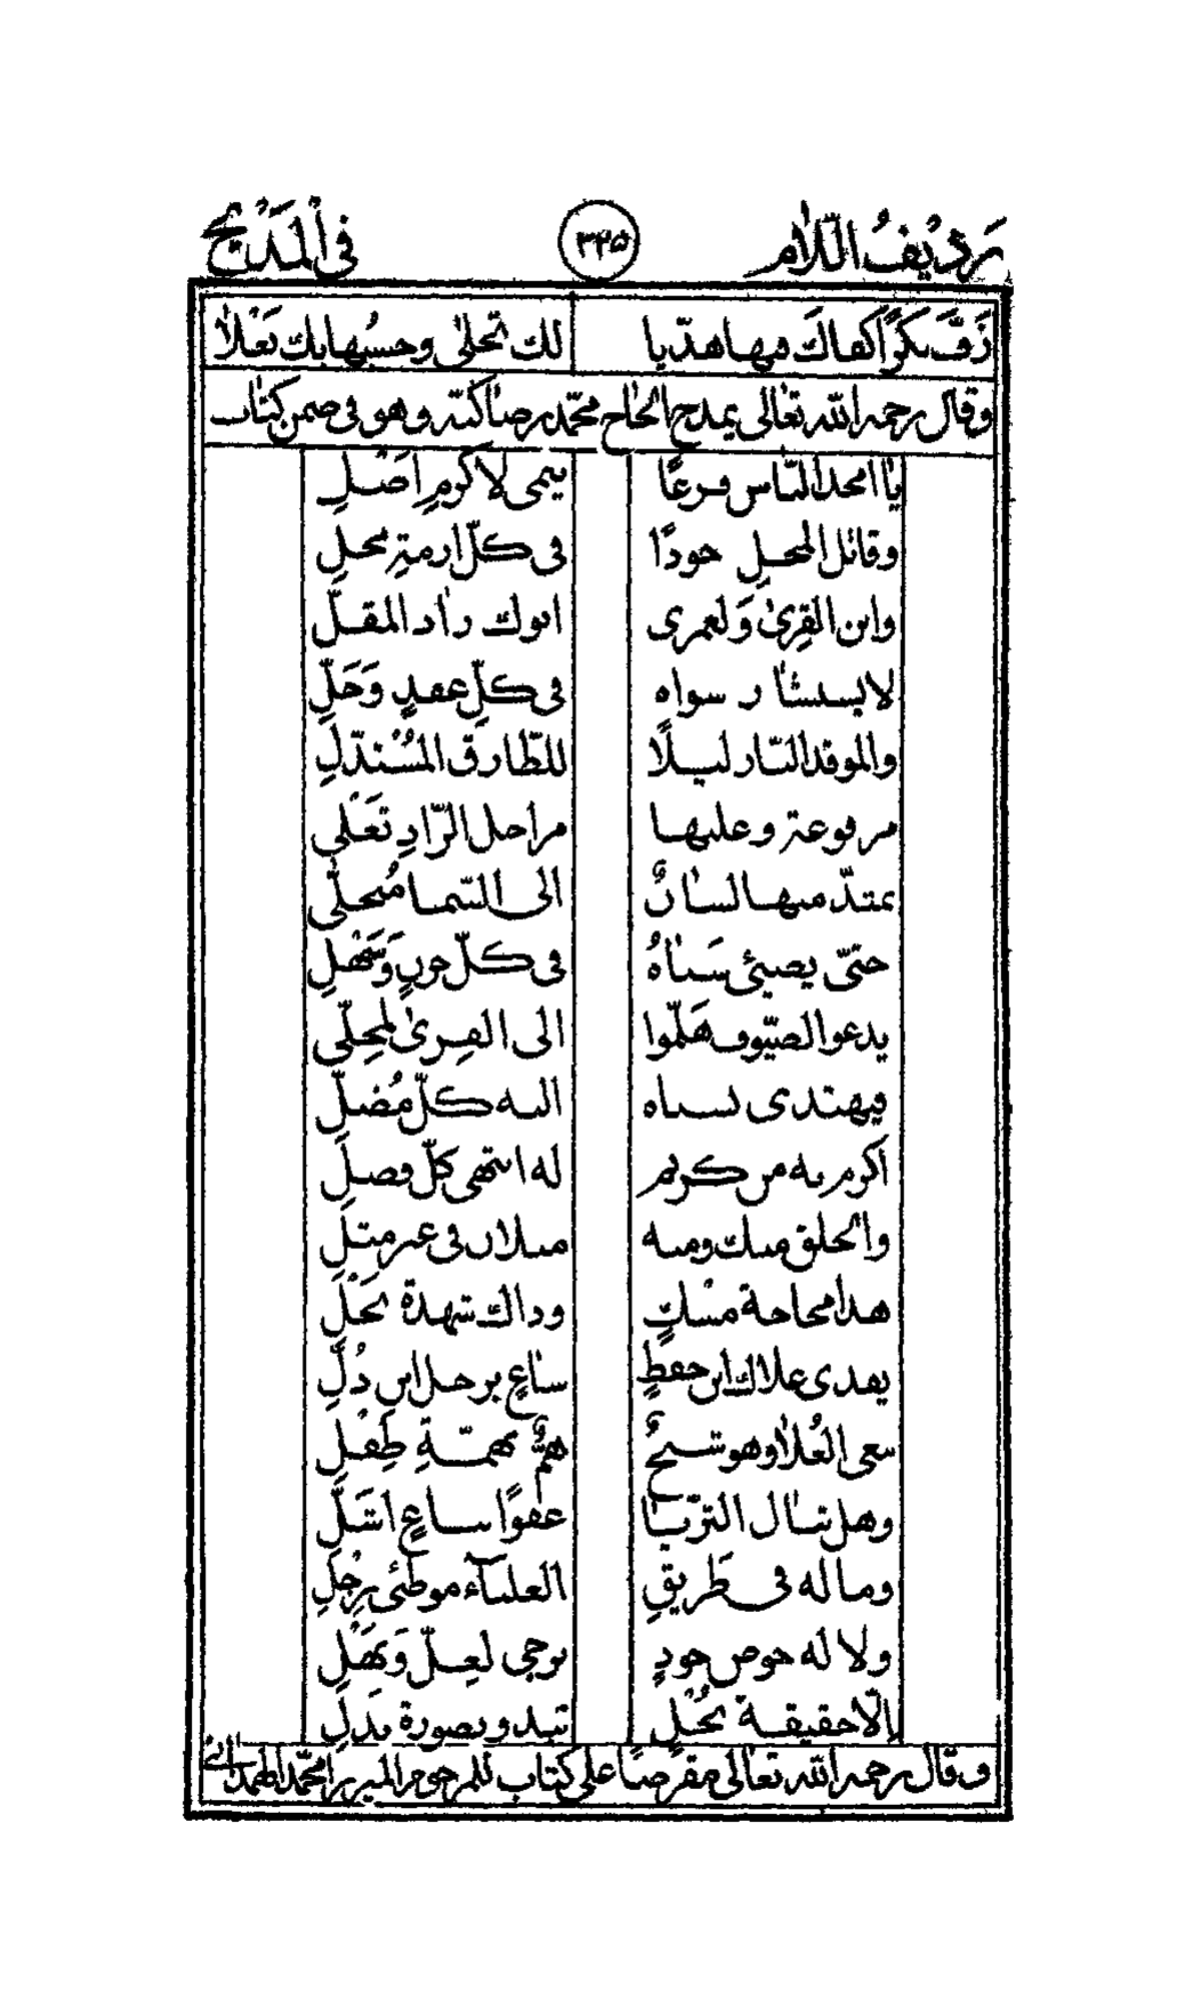 رديف اللام ٣٤٥ في المديح
زَفَّ بكرًا كفاكَ فيها هديا لك تجلى وحسبها بك بَعْلا
وقال رحمه الله تعالى يمدح الحاج محمّد رضا كبّه وهو في ضمن كتاب
يا امجد الناس فرعًا ينمى لاكرمِ اَصْلِ
وقاتل المحلِ جودًا في كلّ ازمةِ محلِ
وابن القِرىٰ وَلعمرى ابوك زاد المقلِّ
لا يستشار سواه في كلِّ عقدٍ وَحَلِّ
والموقد النّار ليلًا للطّارق المُسْتدلِّ
مرفوعة وعليها مراجل الزّادِ تَغْلى
يمتدّ منها لسانٌ الى السّما مُتجلّى
حتّى يضيئ سَناهُ في كلّ حزنٍ وَسَهْلِ
يدعو الضيوف هَلمّوا الى القِرىٰ لمحِلّى
فيهتدى بسناه اليه كلّ مُضلِّ
اكرم به من كريم له انتهى كلّ فضلِ
والخلق منك ومنه مثلان في غير مثلِ
هذا مجاجة مسْكٍ وذاك شهدة نَحْلِ
يفدى علاك ابن خفضٍ ساعٍ برجل ابن ذُلِّ
سعى العُلا وهو شيخٌ همٌّ بهمّةِ طِفْلِ
وهل تنال الثريّا عفوًا بساعٍ اشَلِّ
وما له في طَريقِ العلياء موطئ رِجْلِ
ولا له حوض جودٍ يرجى لعِلّ وَنَهْلِ
الّا حقيقة بُخْلٍ تبدو بصورة بَذلِ
وقال رحمه الله تعالى مقرضًا على كتاب للمرحوم الميرزا محمّد الهمداني